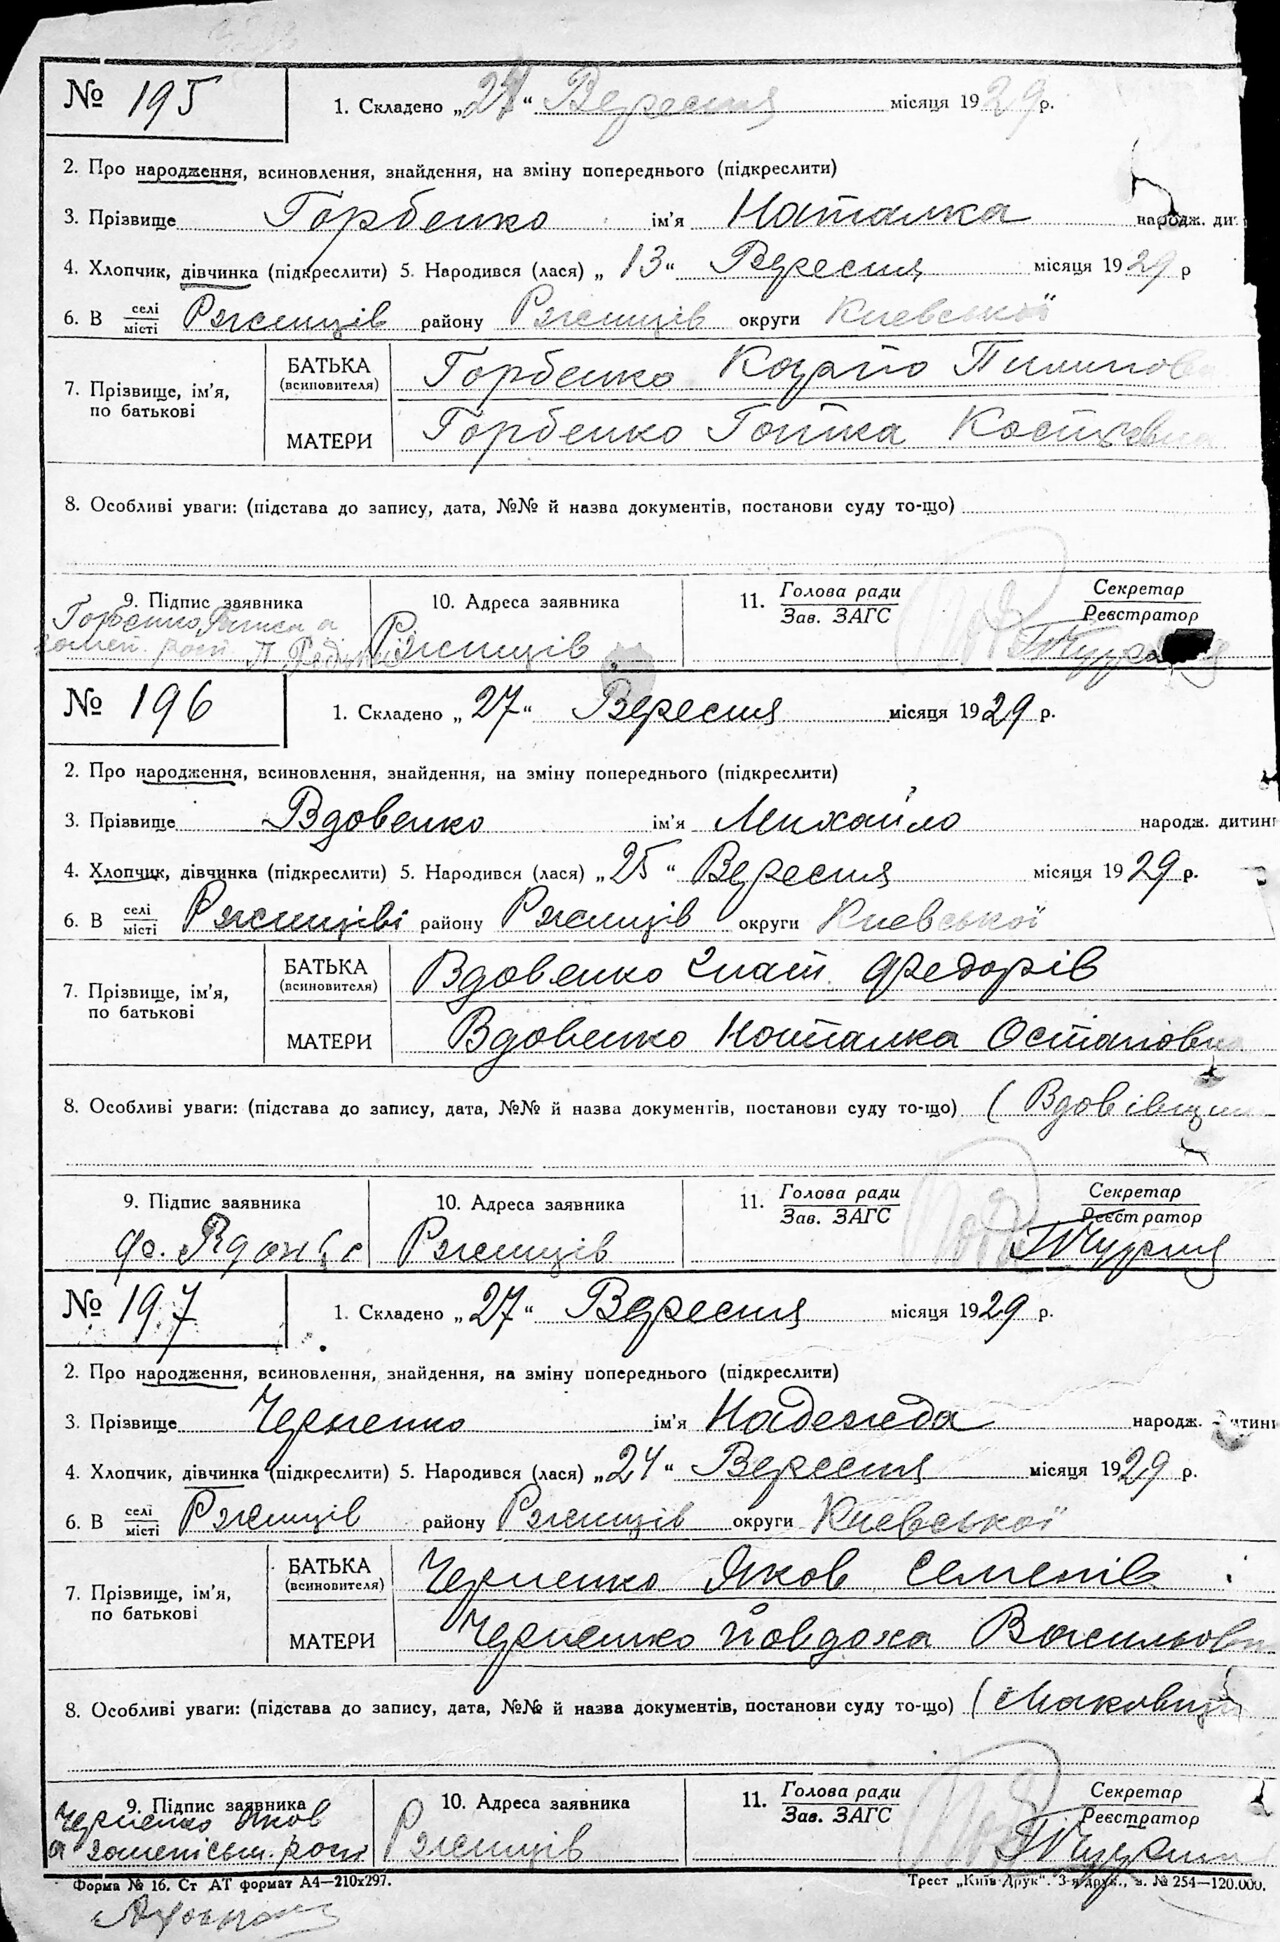 № 195
1. Складено „27“ Вересня місяця 1929 р.
2. Про народження, всиновлення, знайдення, на зміну попереднього (підкреслити)
3. Прізвище Горбенко ім'я Наталка народж. ди
4. Хлопчик, дівчинка (підкреслити) 5. Народився (лася) „13“ Вересня місяця 1929 р
6. В селі/місті Ржищів району Ржищів округи Киевської
7. Прізвище, ім'я, по батькові
БАТЬКА (всиновителя) Горбенко Карпо Пилипов
МАТЕРИ Горбенко Гапка Костевна
8. Особливі уваги: (підстава до запису, дата, №№ й назва документів, постанови суду то-що)
9. Підпис заявника
Горбенко
10. Адреса заявника
Ржищів
11. Голова ради/Зав. ЗАГС
Секретар/Реєстратор
№ 196
1. Складено „27“ Вересня місяця 1929 р.
2. Про народження, всиновлення, знайдення, на зміну попереднього (підкреслити)
3. Прізвище Вдовенко ім'я Михайло народж. дитини
4. Хлопчик, дівчинка (підкреслити) 5. Народився (лася) „25“ Вересня місяця 1929 р.
6. В селі/місті Ржищіві району Ржищів округи Киевської
7. Прізвище, ім'я, по батькові
БАТЬКА (всиновителя) Вдовенко Гнат Федорів
МАТЕРИ Вдовенко Наталка Остаповна
8. Особливі уваги: (підстава до запису, дата, №№ й назва документів, постанови суду то-що) (Вдовівщи
9. Підпис заявника
10. Адреса заявника
Ржищів
11. Голова ради/Зав. ЗАГС
Секретар/Реєстратор
№ 197
1. Складено „27“ Вересня місяця 1929 р.
2. Про народження, всиновлення, знайдення, на зміну попереднього (підкреслити)
3. Прізвище Черненко ім'я Надежда народж. дитини
4. Хлопчик, дівчинка (підкреслити) 5. Народився (лася) „24“ Вересня місяця 1929 р.
6. В селі/місті Ржищів району Ржищів округи Киевської
7. Прізвище, ім'я, по батькові
БАТЬКА (всиновителя) Черненко Яков Семенів
МАТЕРИ Черненко Йовдоха Васильовн
8. Особливі уваги: (підстава до запису, дата, №№ й назва документів, постанови суду то-що) (Маковщи
9. Підпис заявника
Черненко Яков
10. Адреса заявника
Ржищів
11. Голова ради/Зав. ЗАГС
Секретар/Реєстратор
Форма № 16. Ст АТ формат А4—210х297.
Трест „Київ-Друк“. 3-я друк., з. № 254—120.000.